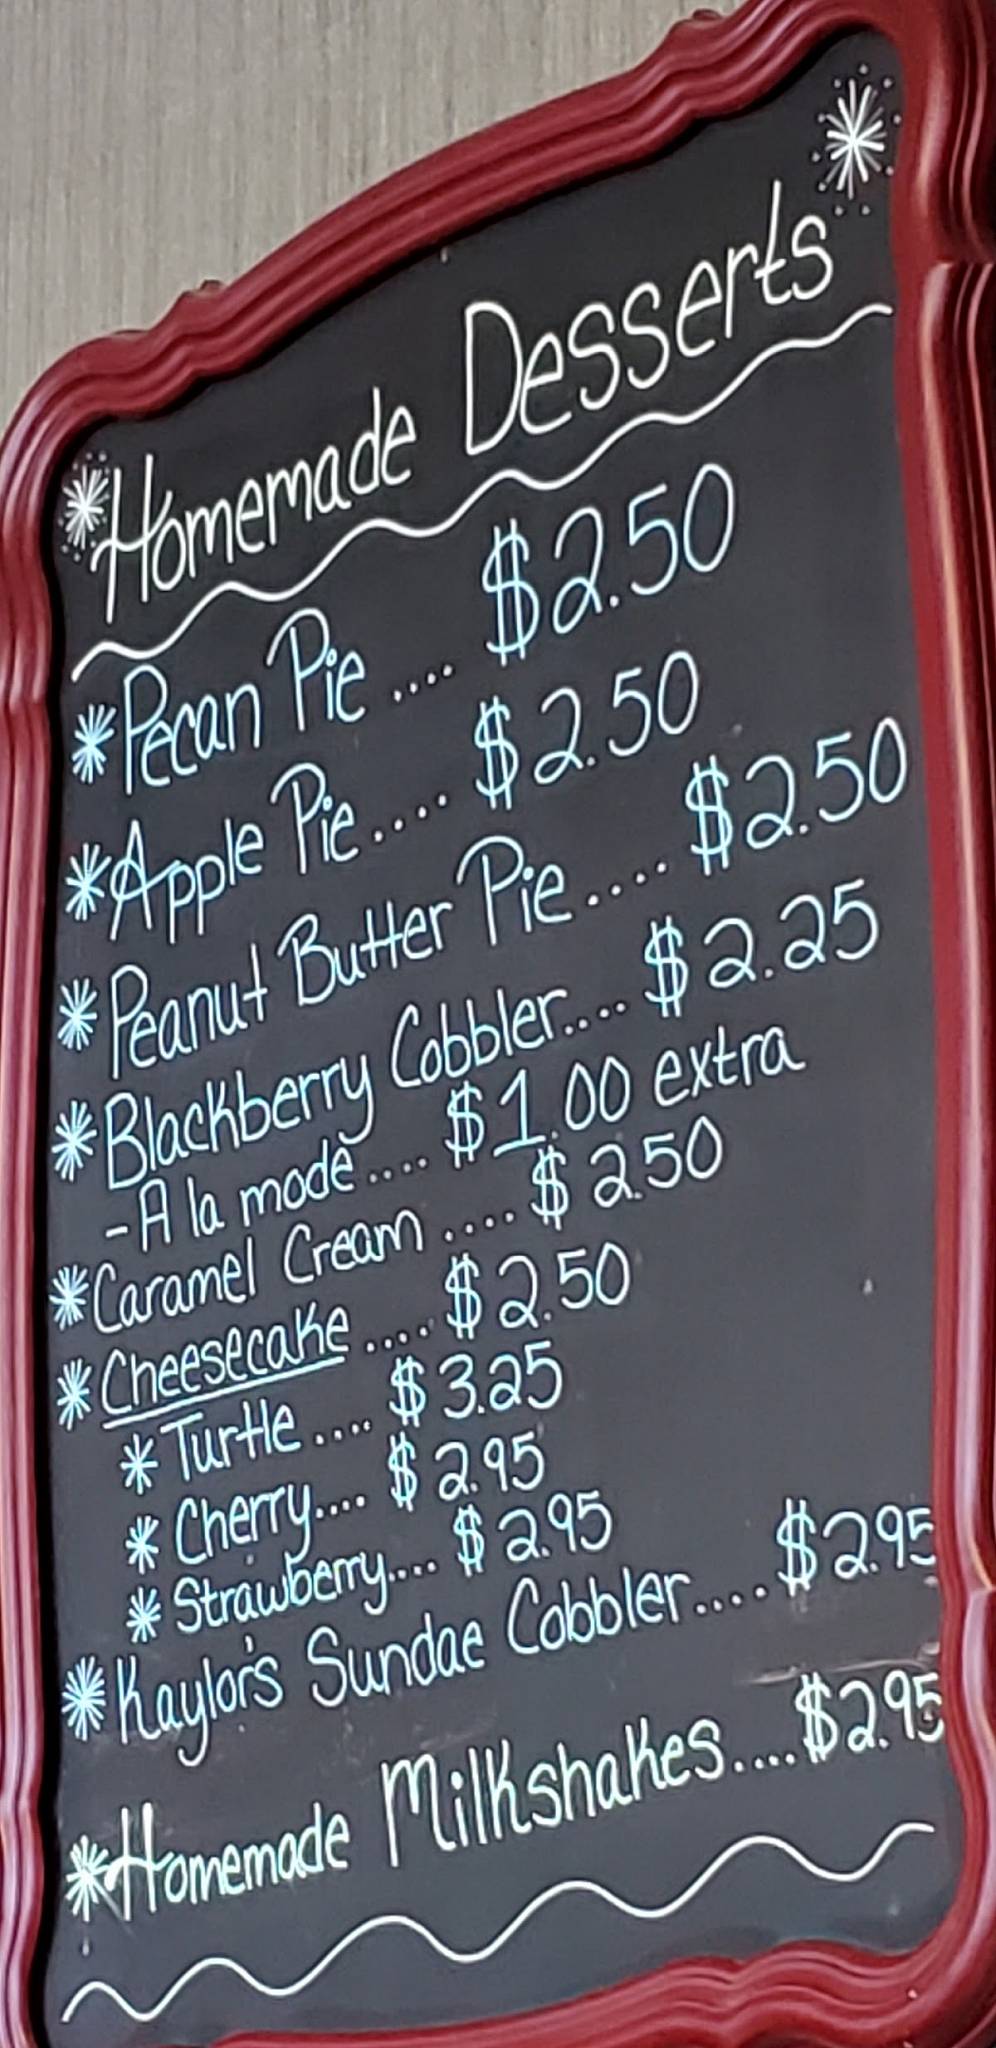 Homemade Desserts
*Pecan Pie .... $2.50
*Apple Pie.... $2.50
*Peanut Butter Pie.... $2.50
*Blackberry Cobbler.... $2.25
-A la mode.... $1.00 extra
*Caramel Cream .... $2.50
*Cheesecake .... $2.50
*Turtle .... $3.25
*Cherry.... $2.95
*Strawberry.... $2.95
*Kaylor's Sundae Cobbler.... $2.95
*Homemade Milkshakes.... $2.95